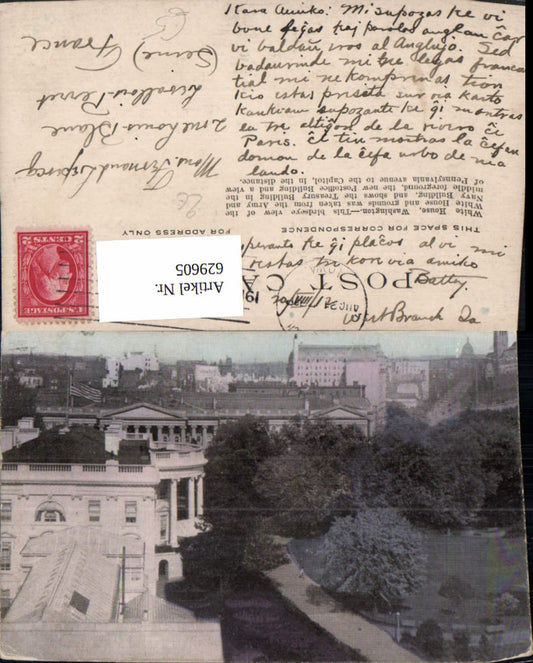 Kara Amiko: Mi supozas ke vi
bone legas kaj parolas anglan ĉar
vi baldaŭ iros al Anglujo. Sed
bedaŭrinde mi ne legas francan
tial mi ne komprenas tion
kio estas presita sur via karto
kankvam supozante ke ĝi montras
la tre altiĝon de la rivero ĉe
Paris. Ĉi tiu montras la ĉefan
domon de la ĉefa urbo de mia
lando.
esperante ke ĝi plaĉos al vi mi
restas tre kon via amiko
Batty.
West Branch Ia
Mons. Fernand
2 rue Louis Blanc
Levallois-Perret
(Seine) France
White House, Washington.—This birdseye view of the
White House and grounds was taken from the Army and
Navy Building, and shows the Treasury Building in the
middle foreground, the new Postoffice Building and a view
of Pennsylvania avenue to the Capitol, in the distance.
THIS SPACE FOR CORRESPONDENCE
FOR ADDRESS ONLY
POST CA
U.S. POSTAGE
2 CENTS 2
Artikel Nr.
629605